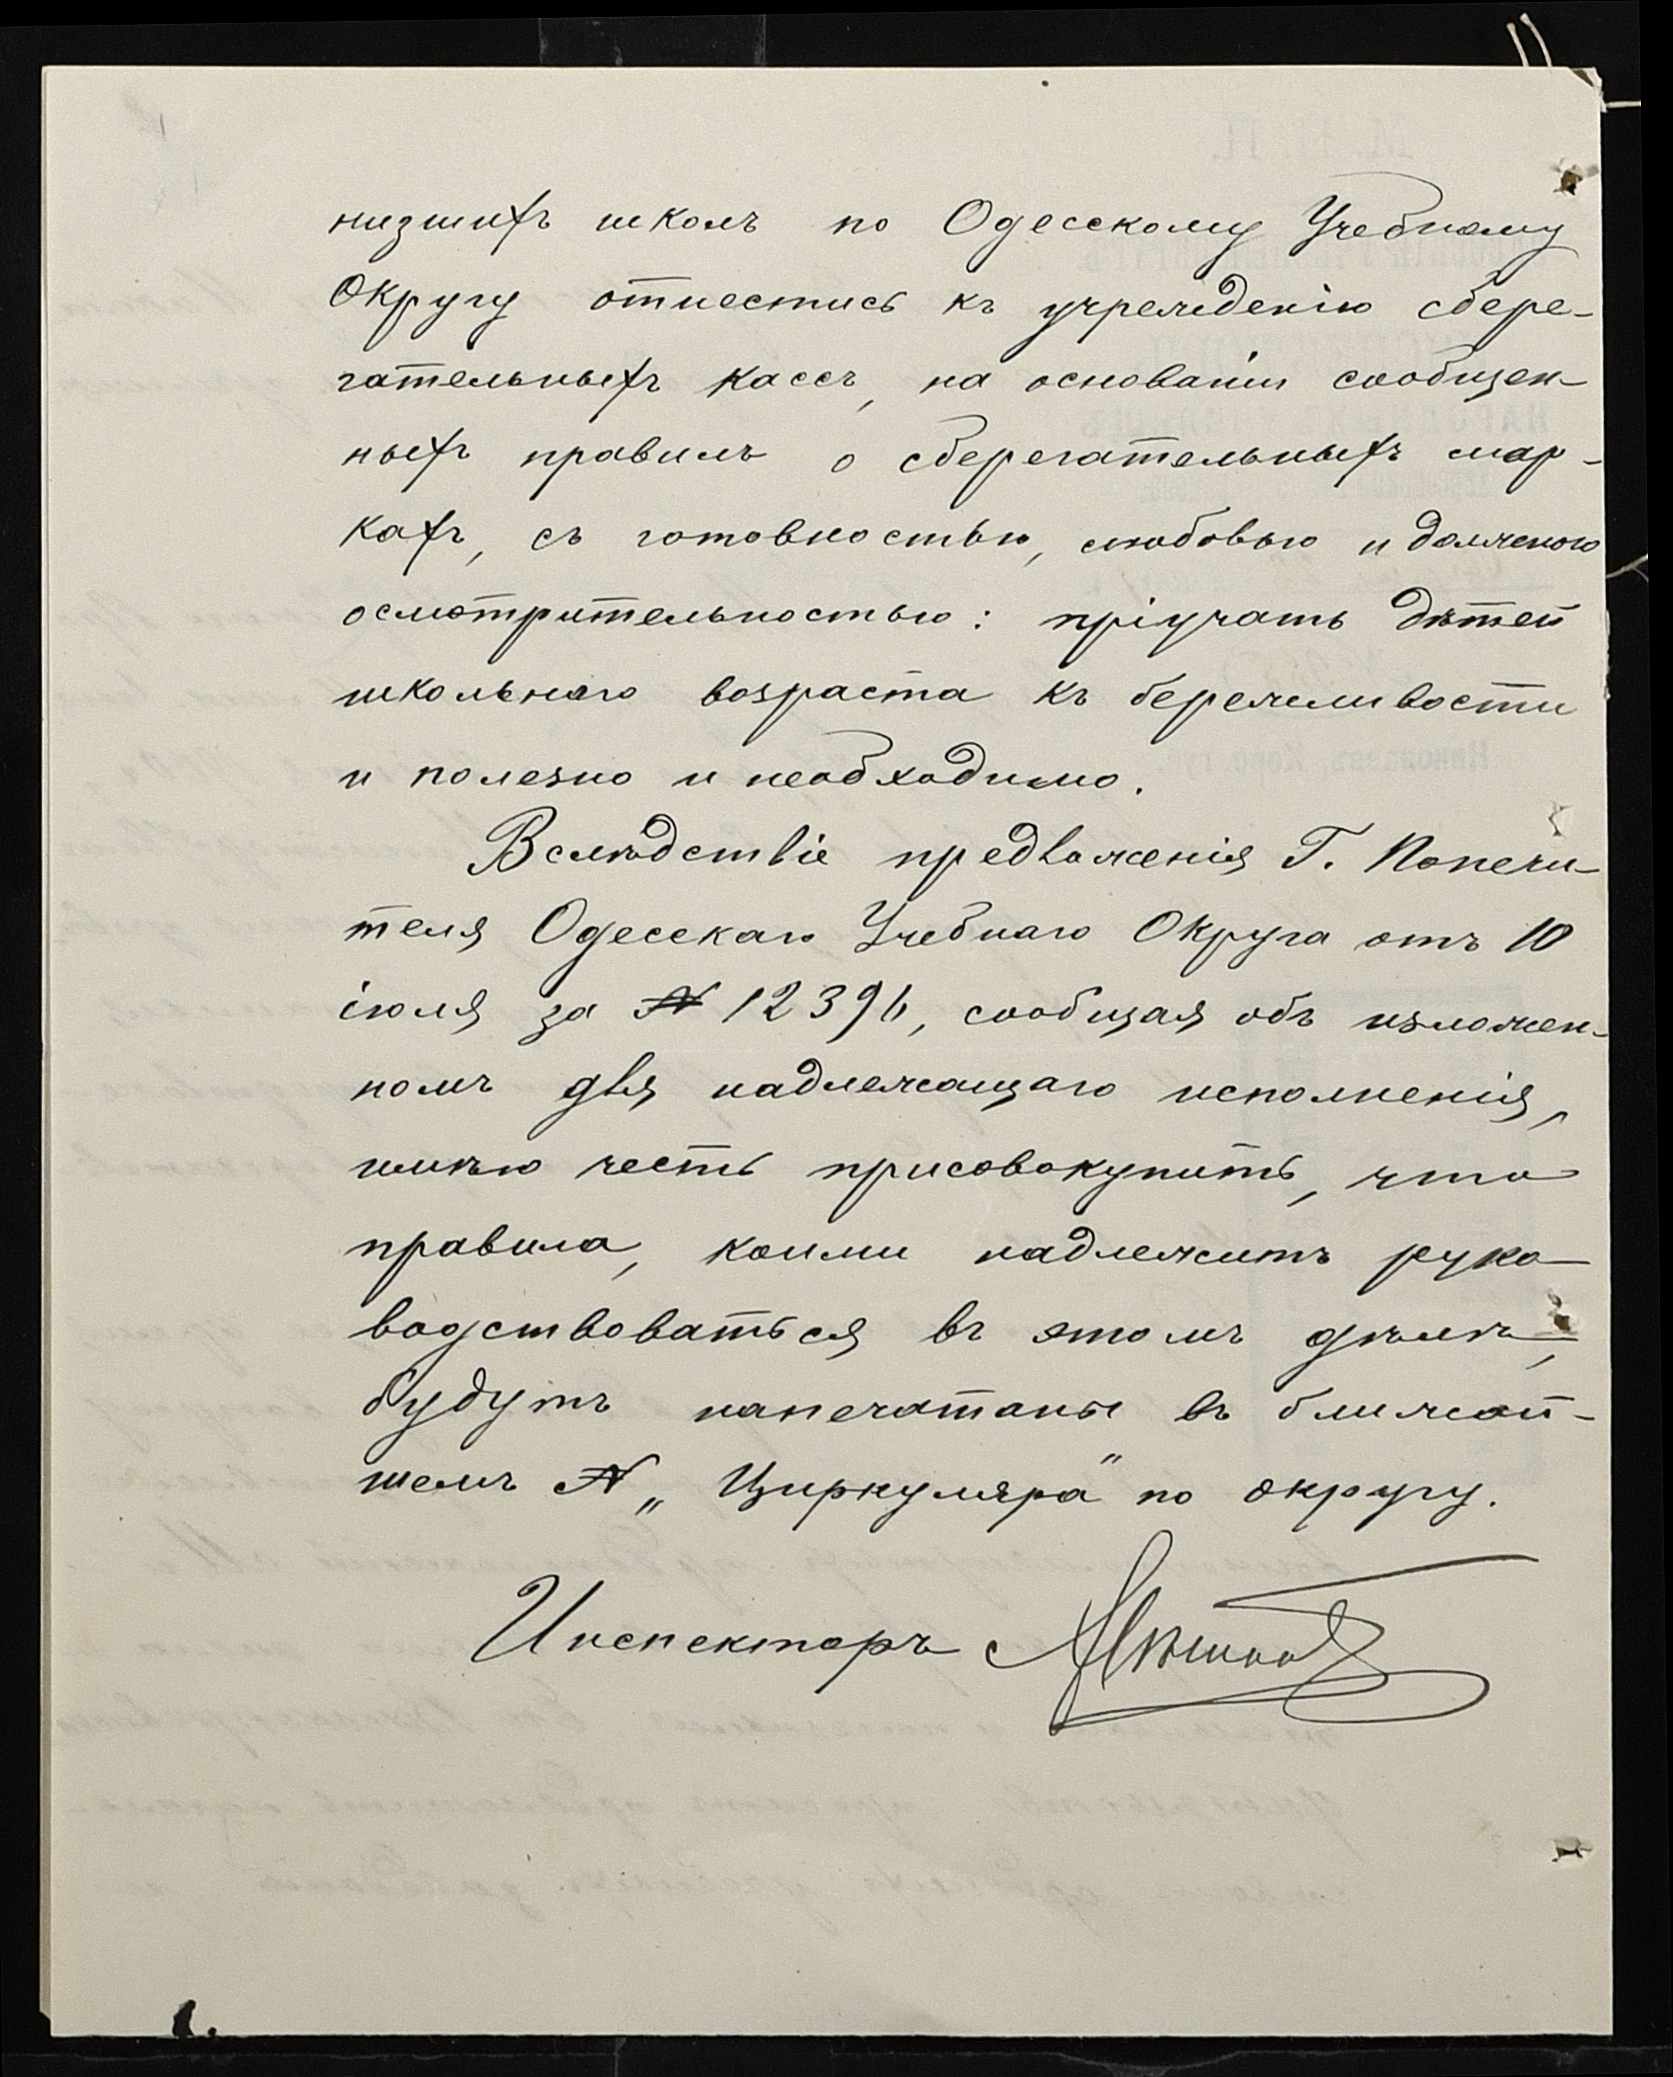 низшихъ школъ по Одесскому Учебному
Округу отнестись къ учрежденію сбере-
гательныхъ кассъ, на основаніи сообщен-
ныхъ правилъ о сберегательныхъ мар-
кахъ, съ готовностью, любовью и должною
осмотрительностью: пріучать дѣтей
школьнаго возраста къ бережливости
и полезно и необходимо.
Вслѣдствіе предложенія Г. Попечи-
теля Одесскаго Учебнаго Округа отъ 10
іюля за № 12396, сообщая объ изложен-
номъ для надлежащаго исполненія,
имѣю честь присовокупить, что
правила, коими надлежитъ руко-
водствоваться въ этомъ дѣлѣ,
будутъ напечатаны въ ближай-
шемъ № „Циркуляра" по округу.
Инспекторъ